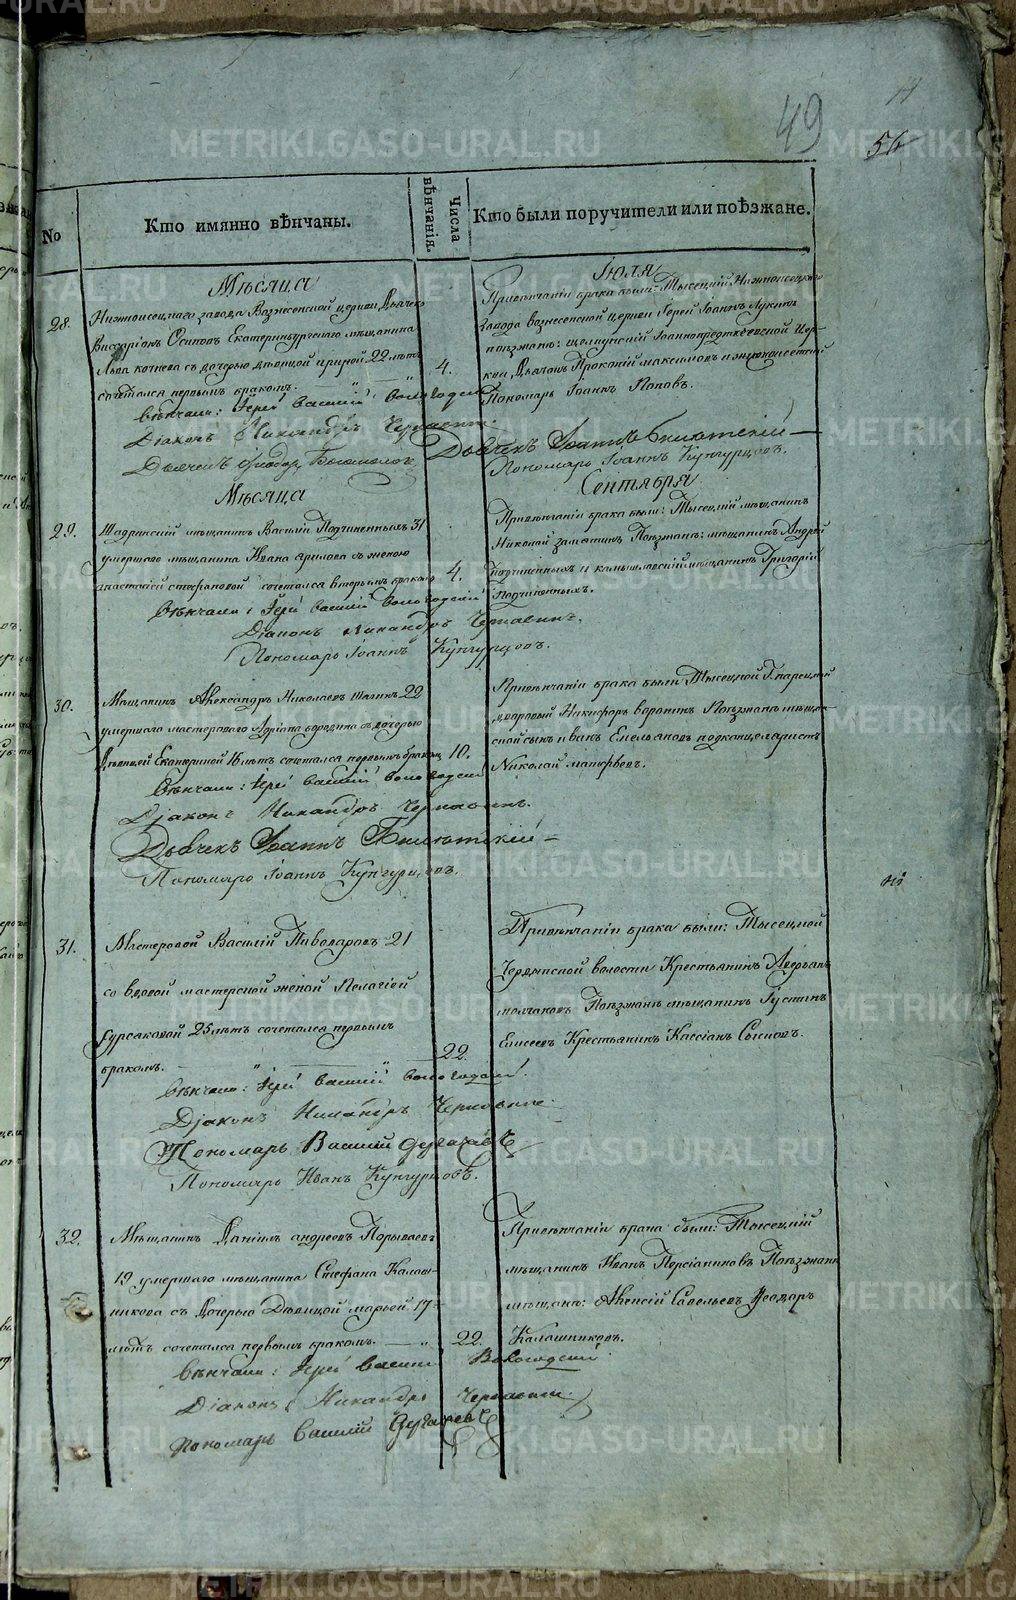 49
56
No
Кто имянно вѣнчаны.
Числа вѣнчанія.
Кто были поручители или поѣзжане.
Мѣсяца
Іюля
28.
Нижноисецкаго завода Вознесенской церкви Дьячекъ
Виссаріонъ Осиповъ Екатеринбургскаго мѣщанина
Льва котнева съ дочерью дѣвицой 22 лѣтъ
сочетался первымъ бракомъ.
4.
Вѣнчали: Іерей Василій Вологодскій
Діаконъ Никандръ Чернавинъ.
Дьячекъ Ѳеодоръ
При вѣнчаніи брака были: Тысецкій Нижноисецкаго
Завода вознесенской церкви Іерей Іоаннъ Лукинъ
поѣзжанъ: Іоаннопредтечевской Цер-
кви Дьячокъ Прокопій максимовъ и нижноисетской
Пономарь Іоаннъ Поповъ.
Дьячекъ Іоаннъ
Пономарь Іоаннъ Кунгурцовъ.
Мѣсяца
Сентября
29.
Шадринскій мѣщанинъ Василій Подчиненныхъ 31
умершаго мѣщанина Ивана съ женою
анастасіей стефановой сочетался вторымъ бракомъ
4.
Вѣнчали: Іерей Василій Вологодскій
Діаконъ Никандръ Чернавинъ.
Пономарь Іоаннъ Кунгурцовъ.
При вѣнчаніи брака были: Тысецкій мѣщанинъ
Николай замятинъ Поѣзжанъ: мѣщанинъ Андрей
Подчиненныхъ и камышловскій мѣщанинъ Григорій
Подчиненныхъ.
30.
Мѣщанинъ Александръ Николаевъ 22
умершаго мастероваго Адріана бородина съ дочерью
Дѣвицей Екатериной 18 лѣтъ сочетался первымъ бракомъ
10.
Вѣнчали: Іерей Василій Вологодскій
Діаконъ Никандръ Чернавинъ.
Дьячекъ Іоаннъ
Пономарь Іоаннъ Кунгурцовъ.
При вѣнчаніи брака были Тысецкой
дворовый Никифоръ воронинъ Поѣзжанъ мѣща-
нской сынъ иванъ Емельяновъ подканцеляристъ
Николай матфѣевъ.
31.
Мастеровой Василій Пивоваровъ 21
со вдовой мастерской женой Пелагіей
Бурсаковой 25 лѣтъ сочетался первымъ
бракомъ.
22.
Вѣнчали: Іерей Василій Вологодскій.
Діаконъ Никандръ Чернавинъ.
Пономарь Василій Дергачевъ
Пономарь Иванъ Кунгурцовъ.
При вѣнчаніи брака были: Тысецкой
Чердынской волости Крестьянинъ Аверьянъ
молчановъ Поѣзжанъ мѣщанинъ Іустинъ
Елисеевъ Крестьянинъ Кассіанъ Сысоевъ.
32.
Мѣщанинъ Даніилъ андреевъ Порываевъ
19 умершаго мѣщанина Стефана Калаш-
никова съ Дочерью Дѣвицой марьей 17
лѣтъ сочетался первымъ бракомъ.
22.
Вѣнчали: Іерей Василій Вологодскій.
Діаконъ Никандръ Чернавинъ.
Пономарь Василій Дергачевъ
При вѣнчаніи брака были: Тысецкій
мѣщанинъ Иванъ Персіаниновъ Поѣзжанъ
мѣщанъ: Алексій Савельевъ Ѳеодоръ
Калашниковъ.
METRIKI.GASO-URAL.RU